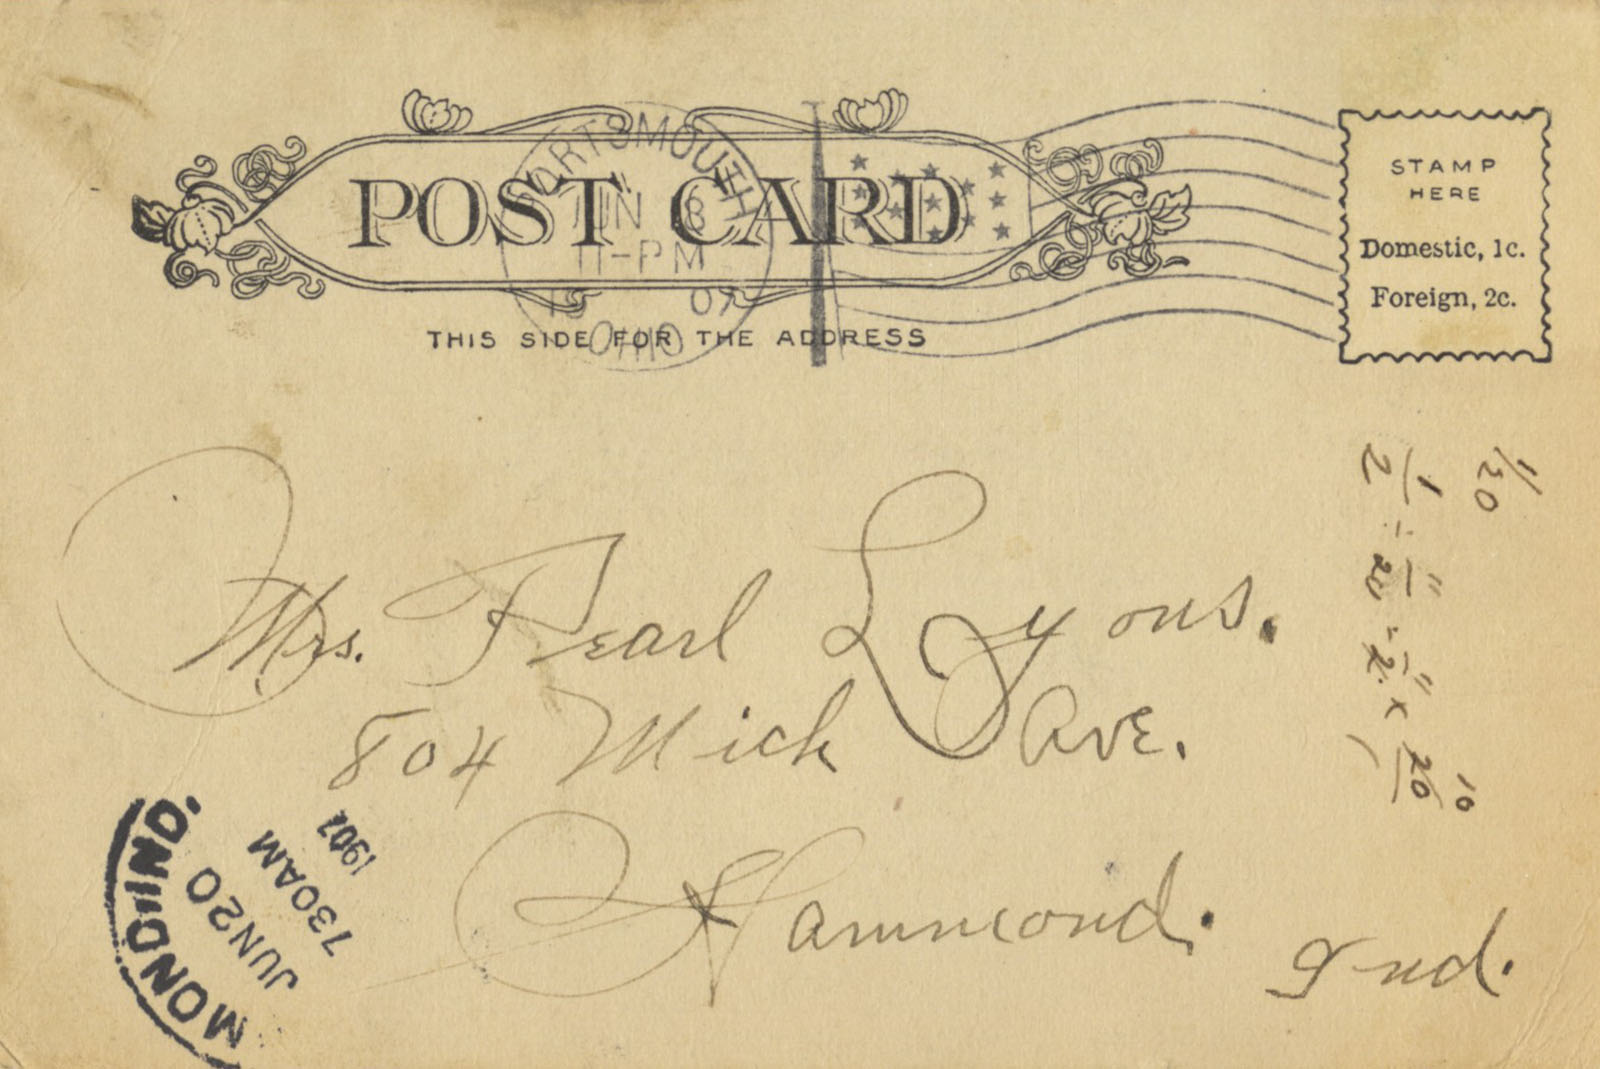 POST CARD
THIS SIDE FOR THE ADDRESS
PORTSMOUTH
JUN 18
11-PM
19 07
OHIO
STAMP
HERE
Domestic, 1c.
Foreign, 2c.
Mrs. Pearl Lyons.
804 Mich Ave.
Hammond.
Ind.
MOND IND.
JUN 20
730AM
1907
1/20